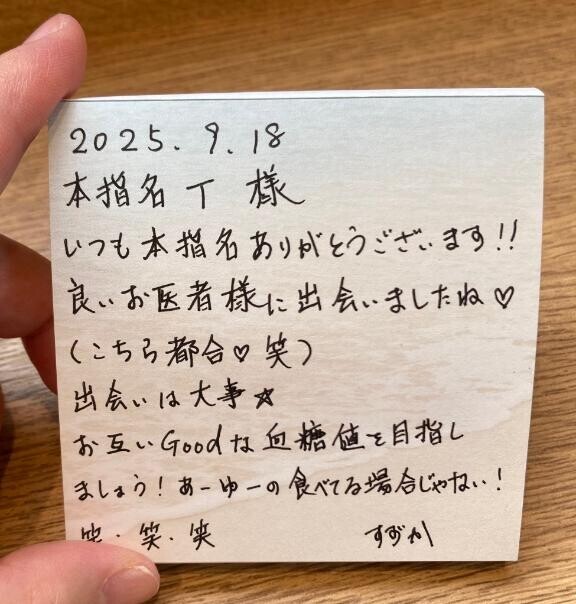 2025.9.18
本指名 T 様
いつも本指名ありがとうございます!!
良いお医者様に出会いましたね♡
(こちら都合♡笑)
出会いは大事☆
お互いGoodな血糖値を目指し
ましょう!あーゆーの食べてる場合じゃない!
笑・笑・笑 すずか